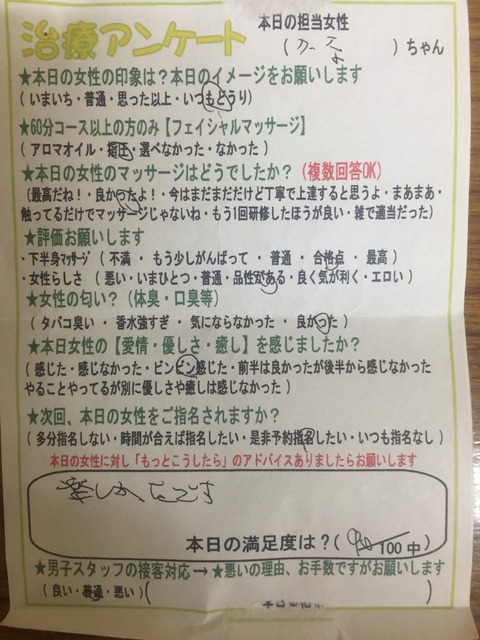 治療アンケート
本日の担当女性
( )ちゃん
★本日の女性の印象は？本日のイメージをお願いします
( いまいち・普通・思った以上・いつもどうり)
★60分コース以上の方のみ【フェイシャルマッサージ】
( アロマオイル・指圧・選べなかった・なかった )
★本日の女性のマッサージはどうでしたか？(複数回答OK)
(最高だね！・良かったよ！・今はまだまだだけど丁寧で上達すると思うよ・まあまあ・
触ってるだけでマッサージじゃないね・もう1回研修したほうが良い・雑で適当だった)
★評価お願いします
・下半身ﾏｯｻｰｼﾞ ( 不満 ・ もう少しがんばって ・ 普通 ・ 合格点 ・ 最高 )
・女性らしさ ( 悪い・いまひとつ・普通・品性がある・良く気が利く・エロい )
★女性の匂い？（体臭・口臭等）
( タバコ臭い ・ 香水強すぎ ・ 気にならなかった ・ 良かった )
★本日の女性の【愛情・優しさ・癒し】を感じましたか？
( 感じた・感じなかった・ビンビン感じた・前半は良かったが後半から感じなかった
やることやってるが別に優しさや癒しは感じなかった )
★次回、本日の女性をご指名されますか？
( 多分指名しない・時間が合えば指名したい・是非予約指名したい・いつも指名なし )
本日の女性に対し「もっとこうしたら」のアドバイスありましたらお願いします
楽しかったです
本日の満足度は？( 90/100中 )
★男子スタッフの接客対応→★悪いの理由、お手数ですがお願いします
( 良い・普通・悪い )(